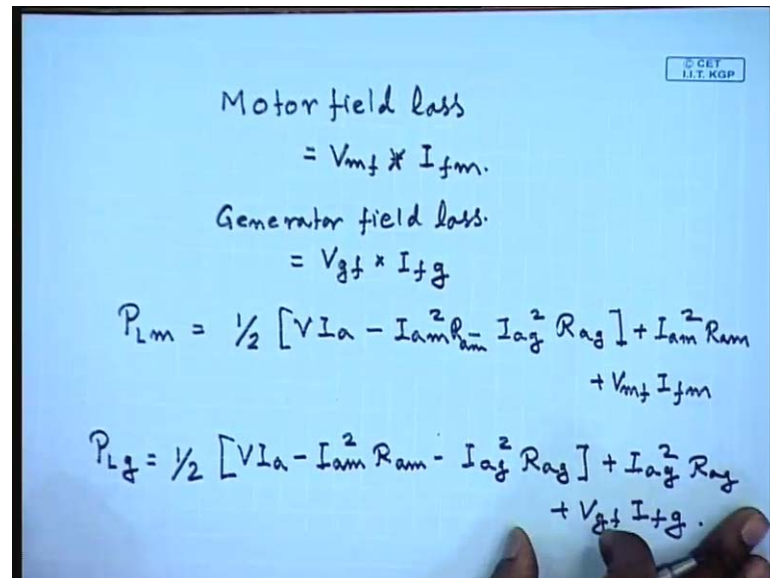 © CET
I.I.T. KGP
Motor field loss
= Vmf * Ifm.
Generator field loss.
= Vgf × Ifg
PLm = 1/2 [VIa - Iam² Ram - Iag² Rag] + Iam² Ram
+ Vmf Ifm
PLg = 1/2 [VIa - Iam² Ram - Iag² Rag] + Iag² Rag
+ Vgf Ifg.